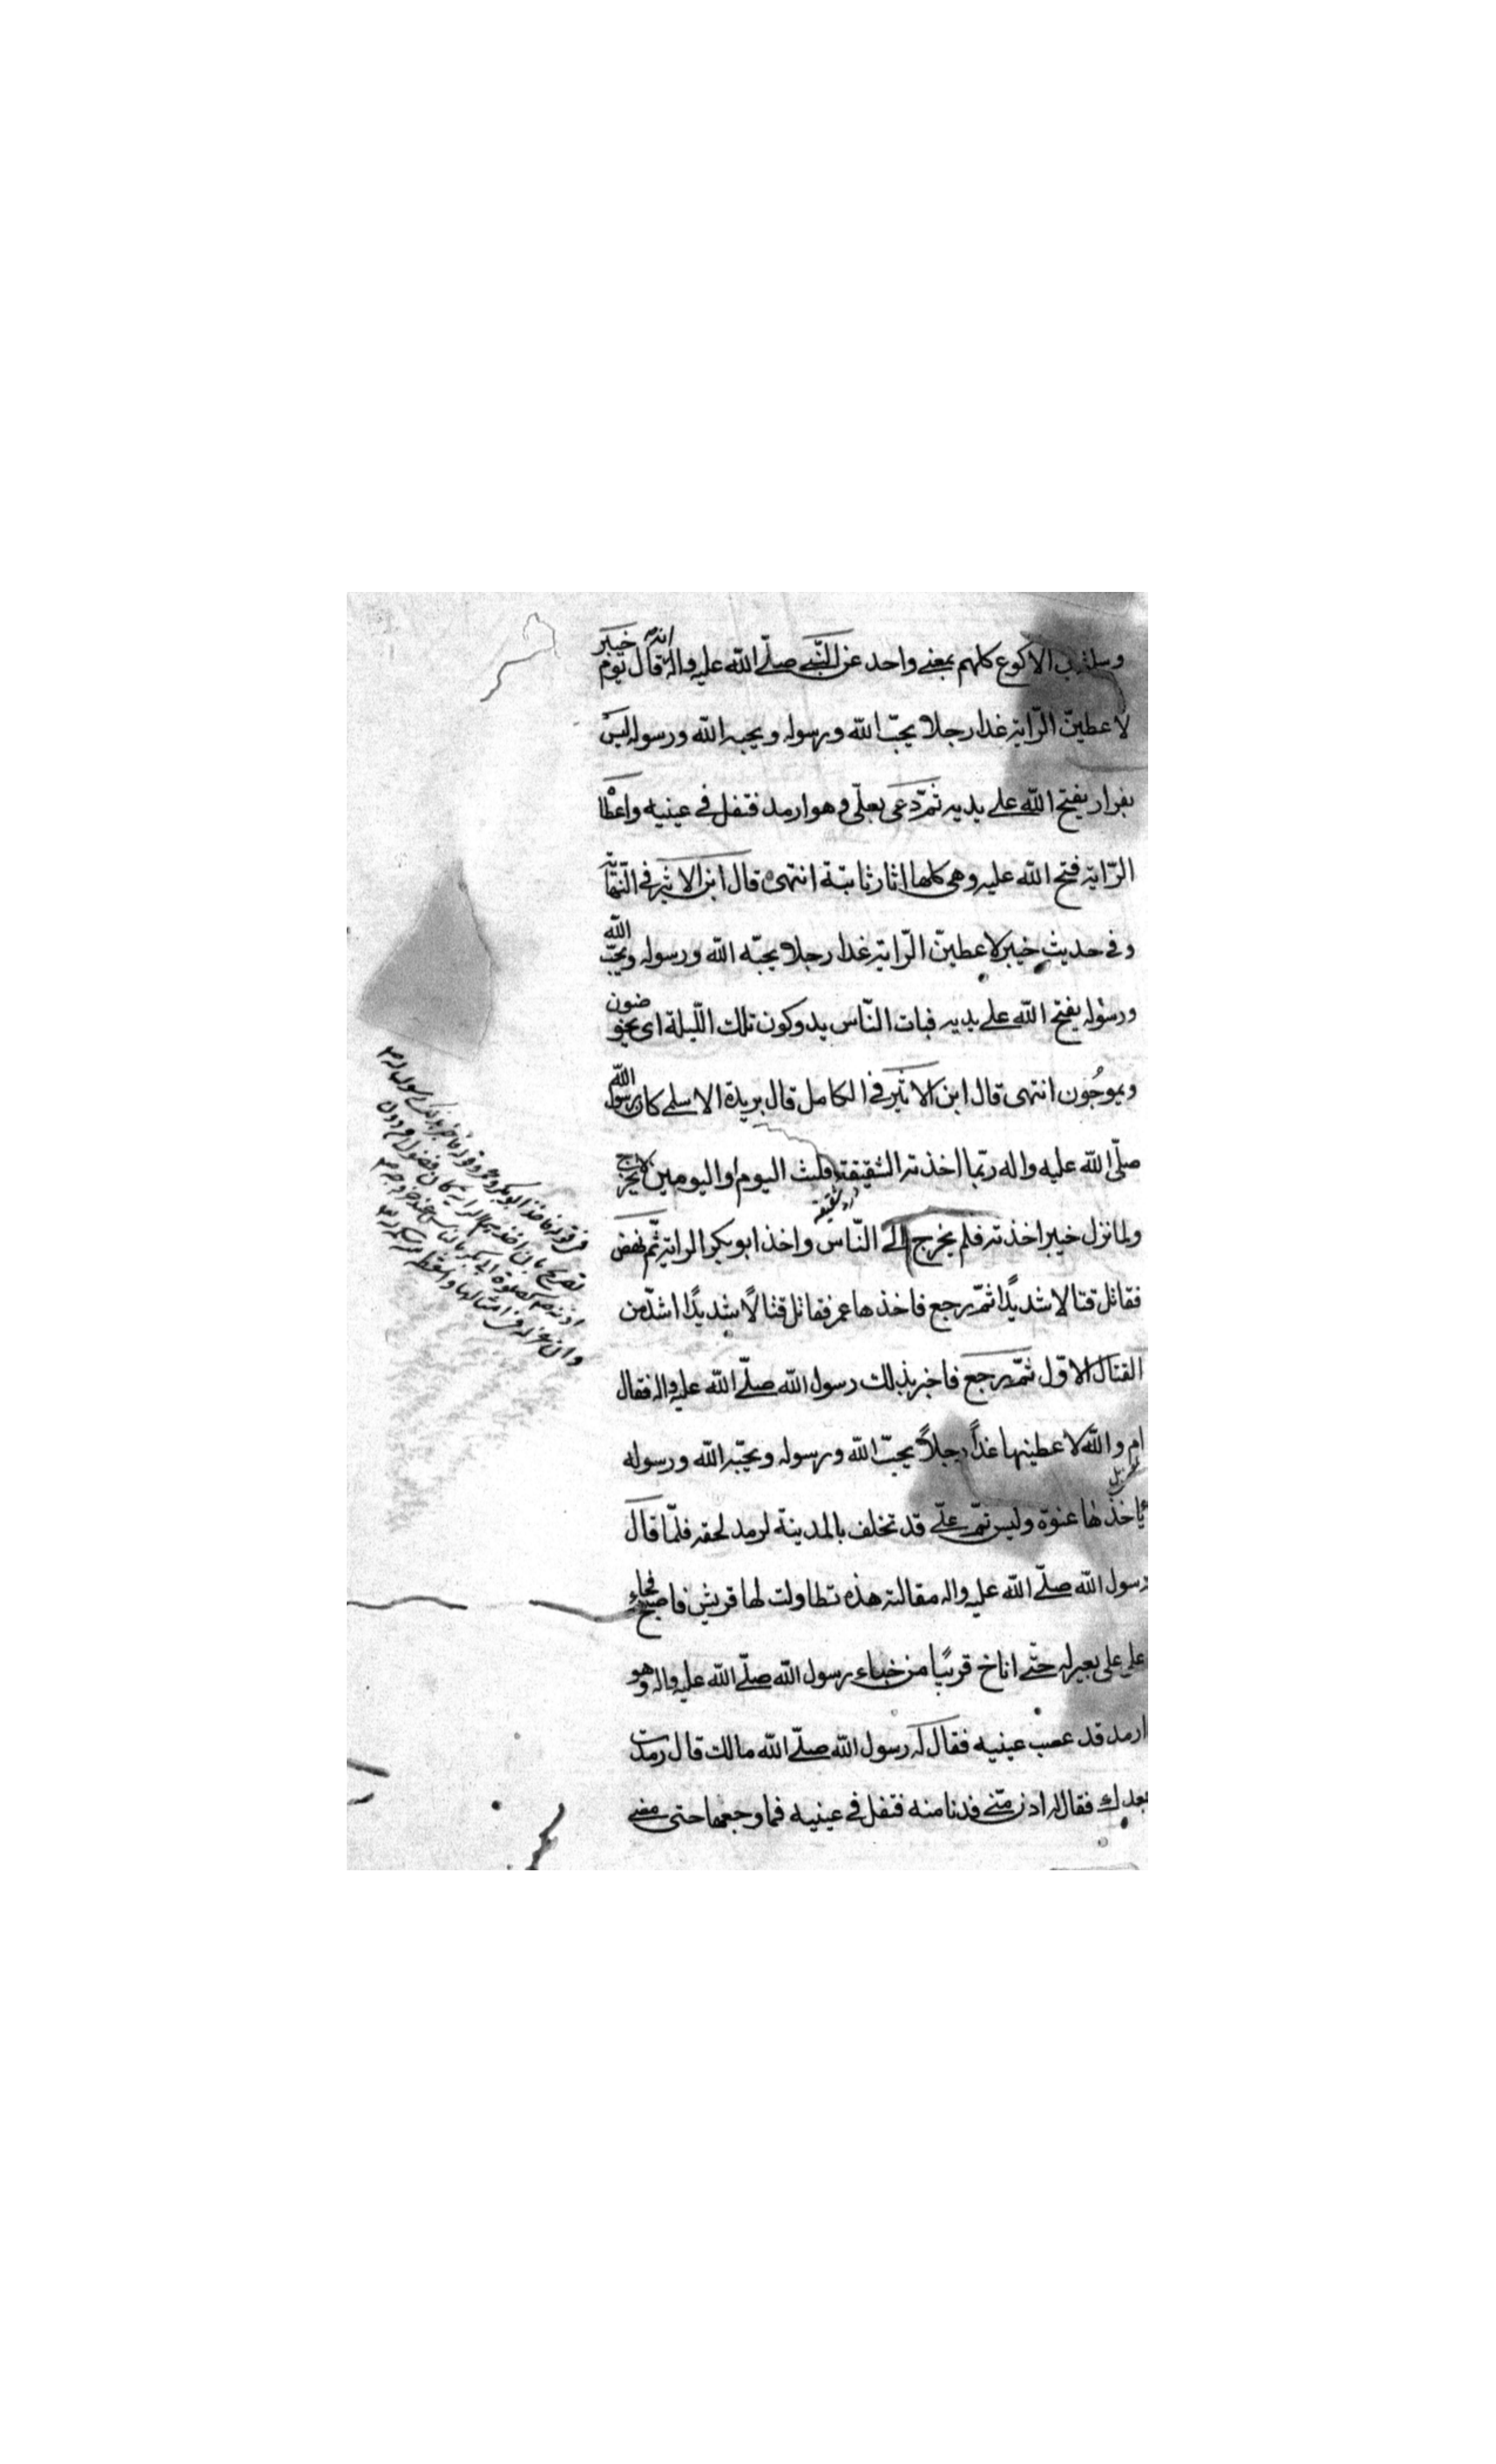 وسلمة بن الاكوع كلهم بمعنى واحد عن النبي صلّى الله عليه واله انه قال يوم خيبر
لاعطينّ الرّاية غدا رجلا يحبّ الله ورسوله ويحبه الله ورسوله ليس
بفرار يفتح الله على يديه ثمّ دعى بعلّى وهو ارمد فتفل فى عينيه واعطا
الرّاية فتح الله عليه وهى كلها اثار ثابتة انتهى قال ابن الاثير فى النّهاية
وفى حديث خيبر لاعطينّ الرّاية غدا رجلا يحبّه الله ورسوله ويحبّ الله
ورسوله يفتح الله على يديه فبات النّاس يدوكون تلك اللّيلة اى يخوضون
ويموجُون انتهى قال ابن الاثير فى الكامل قال بريدة الاسلمى كان رسول الله
صلّى الله عليه واله ربّما اخذته الشقيقة فلبث اليوم او اليومين لا يخرج
ولما نزل خيبر اخذته فلم يخرج الى النّاس واخذ ابو بكر الراية ثمّ نهض
فقاتل قتالا شديدًا ثمّ رجع فاخذها عمر فقاتل قتالًا شديدًا اشدّ من
القتال الاوّل ثمّ رجع فاخبر بذلك رسول الله صلّى الله عليه واله فقال
ام والله لاعطينها غداً رجلاً يحبّ الله ورسوله ويحبّه الله ورسوله
ياخذها عنوة وليس ثمّ علىّ قد تخلف بالمدينة لرمد لحقه فلمّا قال
رسول الله صلّى الله عليه واله مقالته هذه تطاولت لها قريش فاصبح فجاء
على على بعير له حتّى اناخ قريبًا من خباء رسول الله صلّى الله عليه واله وهو
ارمد قد عصب عينيه فقال له رسول الله صلّى الله مالك قال رمدت
بعدك فقال له ادن منّى فدنا منه فتفل فى عينيه فما وجعها حتى مضى